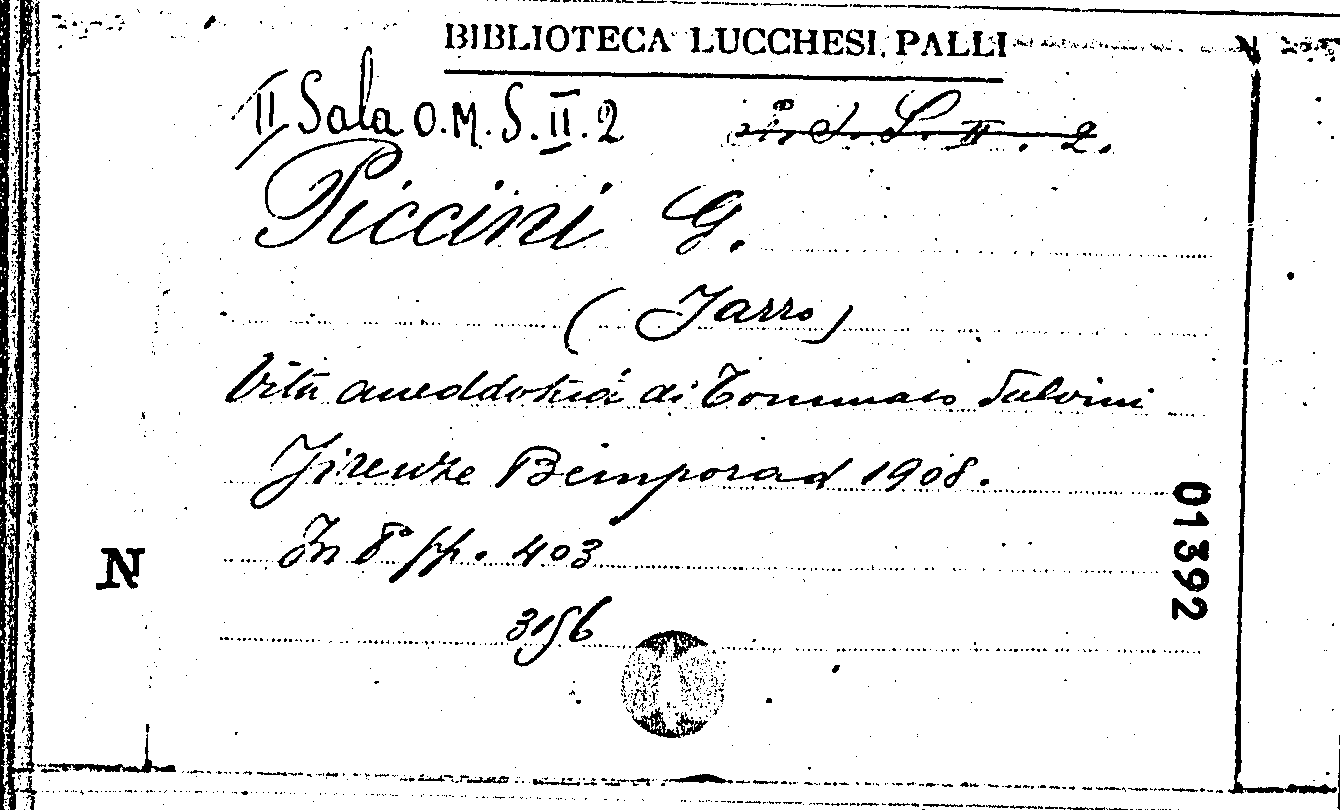 BIBLIOTECA LUCCHESI PALLI
II Sala O.M. S. II. 2
S. II. 2.
Piccini G.
(Jarro)
Vita aneddotica di Tommaso Salvini
Firenze Bemporad 1908.
In 8° pp. 403
3156
N
01392